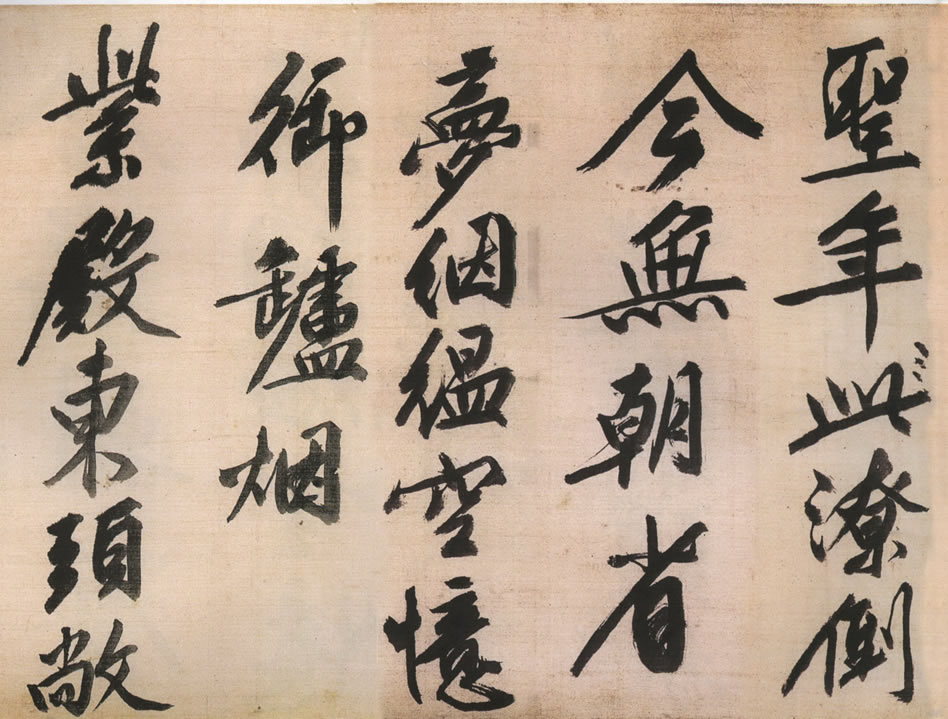 聖年此潦倒
今無朝省
夢絪緼空憶
御罏烟
紫殿東頭敞